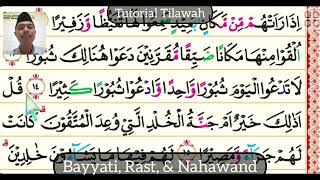 Tutorial Tilawah
إِذَا رَأَتْهُمْ مِّنْ مَّكَانٍ سَمِعُوا لَهَا تَغَيُّظًا وَّزَفِيْرًا
اُلْقُوْا مِنْهَا مَكَانًا ضَيِّقًا مُّقَرَّنِيْنَ دَعَوْا هُنَالِكَ ثُبُوْرًا
لَا تَدْعُوا الْيَوْمَ ثُبُوْرًا وَّاحِدًا وَّادْعُوْا ثُبُوْرًا كَثِيْرًا ١٤ قُلْ
اَذٰلِكَ خَيْرٌ اَمْ جَنَّةُ الْخُلْدِ الَّتِيْ وُعِدَ الْمُتَّقُوْنَ كَانَتْ
لَهُمْ جَزَاۤءً وَّمَصِيْرًا ١٥ لَهُمْ فِيْهَا مَا يَشَاۤءُوْنَ خٰلِدِيْنَ
Bayyati, Rast, & Nahawand